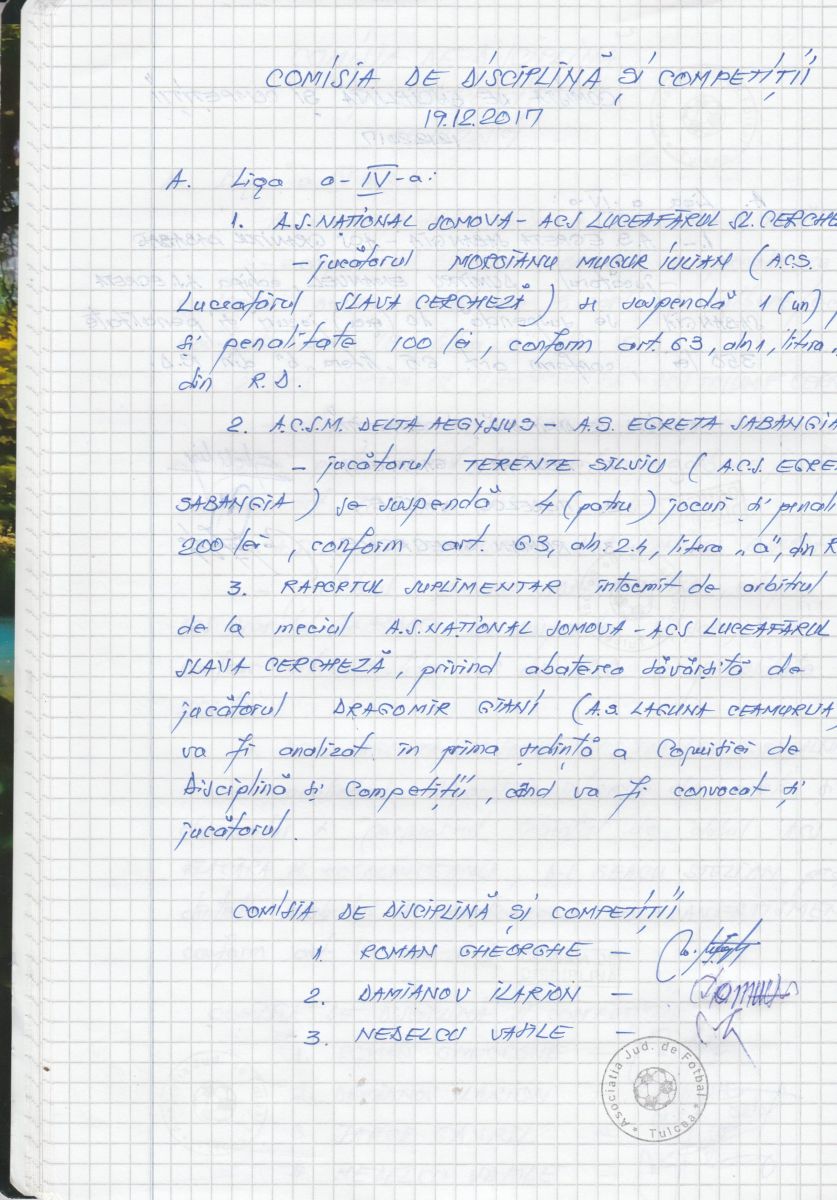 COMISIA DE DISCIPLINĂ ȘI COMPETIȚII
19.12.2017
A. Liga a-IV-a:
1. A.S. NAȚIONAL SOMOVA - ACS LUCEAFĂRUL SL. CERCHE
- jucătorul MOROIANU MUGUR IULIAN (A.C.S.
Luceafărul SLAVA CERCHEZĂ) se suspendă 1 (un),
și penalitate 100 lei, conform art. 63, aln 1, litera
din R.D.
2. A.C.S.M. DELTA AEGYSSUS - A.S. EGRETA SABANGIA
- jucătorul TERENTE SILVIU (A.C.S. EGRE
SABANGIA) se suspendă 4 (patru) jocuri și penali
200 lei, conform art. 63, aln. 2.4, litera „a", din R
3. RAPORTUL SUPLIMENTAR întocmit de arbitrul
de la meciul A.S. NAȚIONAL SOMOVA - ACS LUCEAFĂRUL
SLAVA CERCHEZĂ, privind abaterea săvârșită de
jucătorul DRAGOMIR GIANI (A.S. LAGUNA CEAMURLIA)
va fi analizat în prima ședință a Comisiei de
Disciplină și Competiții, când va fi convocat și
jucătorul.
COMISIA DE DISCIPLINĂ ȘI COMPETIȚII
1. ROMAN GHEORGHE -
2. DAMIANOV ILARION -
3. NEDELCU VASILE -
Asociatia Jud. de Fotbal * Tulcea *